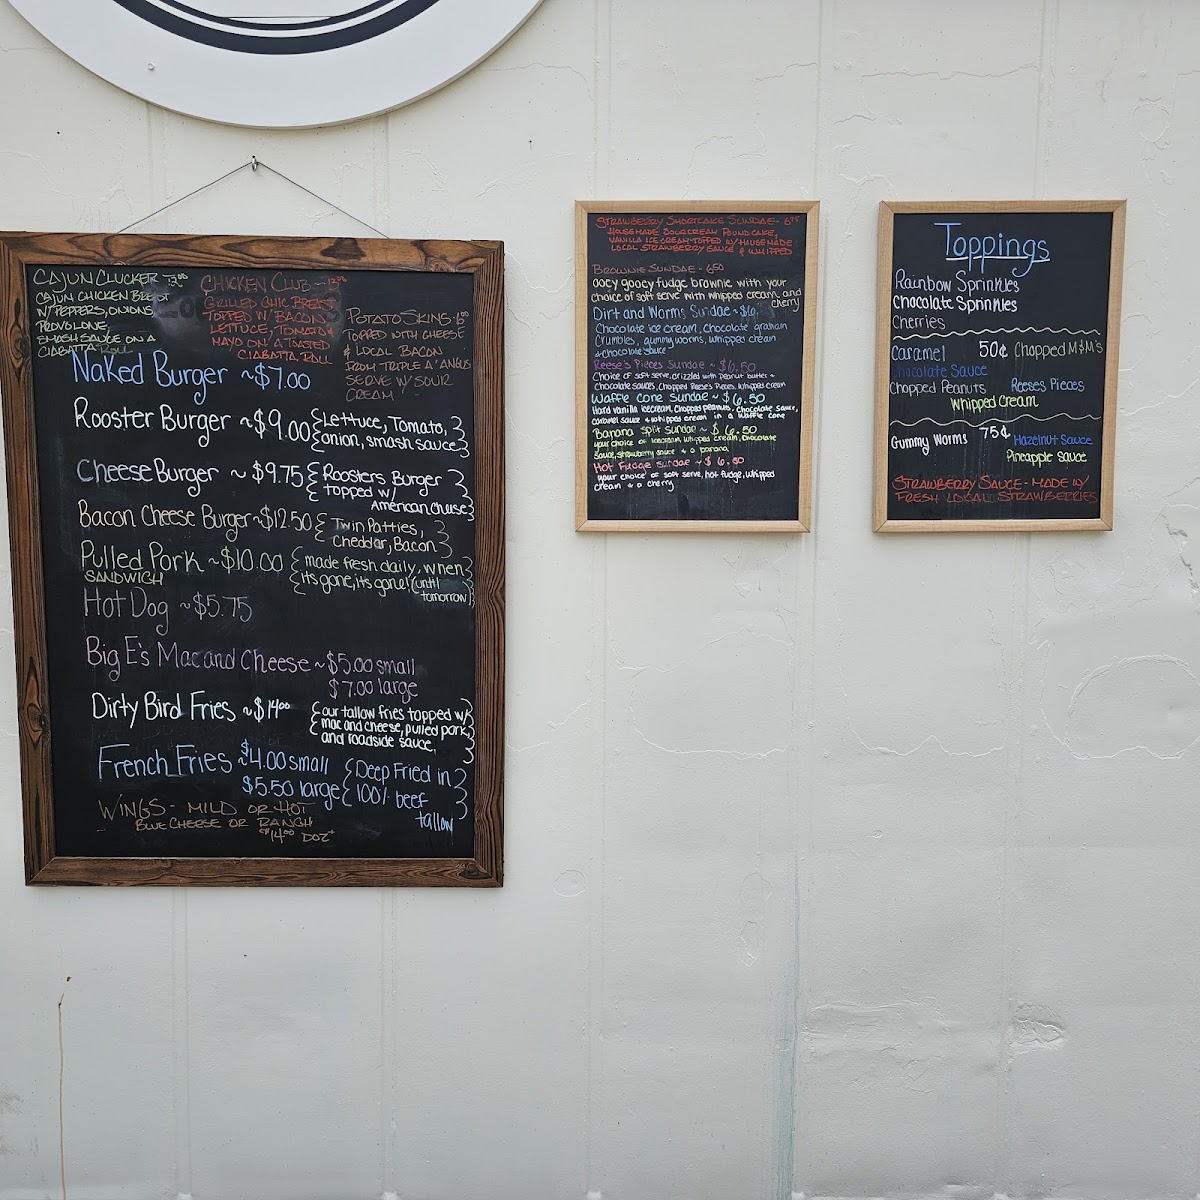 CAJUN CLUCKER - 13.00
CAJUN CHICKEN BREAST
W/ PEPPERS, ONIONS
PROVOLONE,
SMASH SAUCE ON A
CIABATTA ROLL
CHICKEN CLUB - 13.00
GRILLED CHIC BREAST
TOPPED W/ BACON
LETTUCE, TOMATO &
MAYO ON A TOASTED
CIABATTA ROLL
POTATO SKINS
TOPPED WITH CHEESE
& LOCAL BACON
FROM TRIPLE A ANGUS
SERVE W/ SOUR
CREAM
Naked Burger ~$7.00
Rooster Burger ~$9.00 {Lettuce, Tomato,}
{onion, smash sauce}
Cheese Burger ~ $9.75 {Roosters Burger}
{topped w/
American cheese}
Bacon Cheese Burger ~$12.50 {Twin Patties,}
{Cheddar, Bacon}
Pulled Pork ~$10.00 {made fresh daily, when}
SANDWICH {its gone, its gone! (until
tomorrow)}
Hot Dog ~$5.75
Big E's Mac and Cheese ~$5.00 small
$7.00 large
Dirty Bird Fries ~$14.00 {our tallow fries topped w/
mac and cheese, pulled pork
and roadside sauce.}
French Fries ~$4.00 small {Deep Fried in
$5.50 large {100% beef
tallow}
WINGS - MILD OR HOT
BLUE CHEESE OR RANCH
$14.00 DOZ
STRAWBERRY SHORTCAKE SUNDAE - 6.75
HOUSEMADE SOUR CREAM POUND CAKE,
VANILLA ICE CREAM TOPPED W/ HOUSEMADE
LOCAL STRAWBERRY SAUCE & WHIPPED
BROWNIE SUNDAE - 6.50
ooey gooey fudge brownie with your
choice of soft serve with whipped cream and
cherry
Dirt and Worms Sundae ~$6.
Chocolate ice cream, chocolate graham
crumbles, gummy worms, whipped cream
& chocolate sauce
Reese's Pieces Sundae ~ $6.50
Choice of soft serve, drizzled with Peanut butter &
chocolate sauces, Chopped Reese's Pieces, whipped cream
Waffle Cone Sundae ~ $6.50
Hard vanilla icecream, chopped peanuts, chocolate sauce,
caramel sauce & whipped cream in a waffle cone
Banana Split Sundae ~ $6.50
your choice of icecream, whipped cream, chocolate
sauce, strawberry sauce & a banana
Hot Fudge Sundae ~ $6.50
your choice of soft serve, hot fudge, whipped
cream & a cherry
Toppings
Rainbow Sprinkles
Chocolate Sprinkles
Cherries
Caramel 50¢ Chopped M&M's
Chocolate Sauce
Chopped Peanuts Reeses Pieces
Whipped Cream
Gummy Worms 75¢ Hazelnut Sauce
Pineapple Sauce
STRAWBERRY SAUCE - MADE W/
FRESH LOCAL STRAWBERRIES